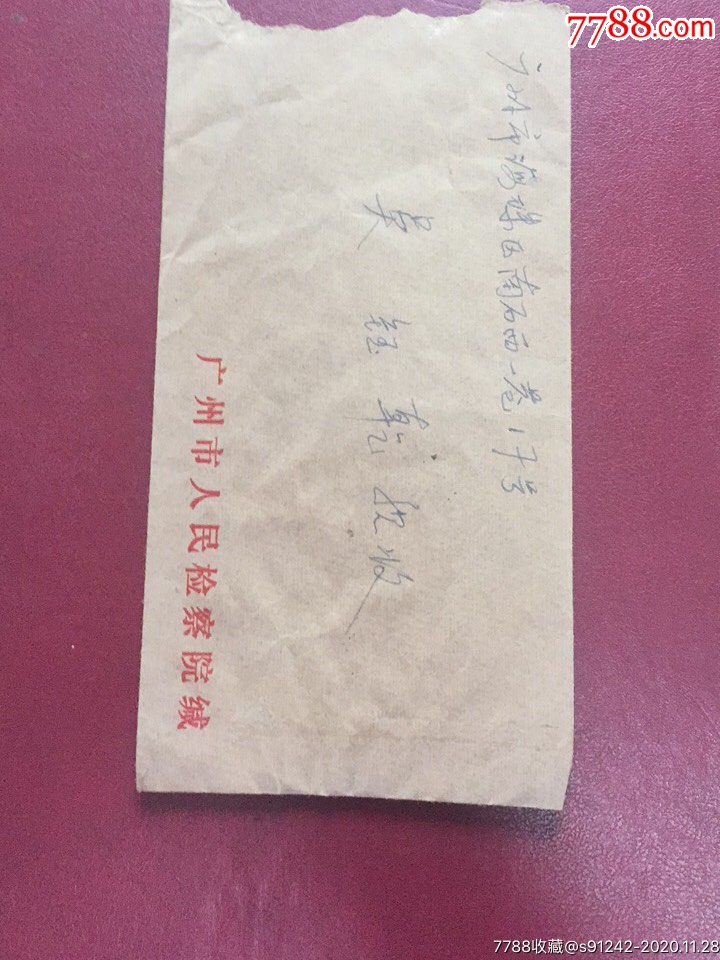 7788.com
广州市海珠区南石西一巷17号
吴钰乾 収收
广州市人民检察院缄
7788收藏@s91242-2020.11.28